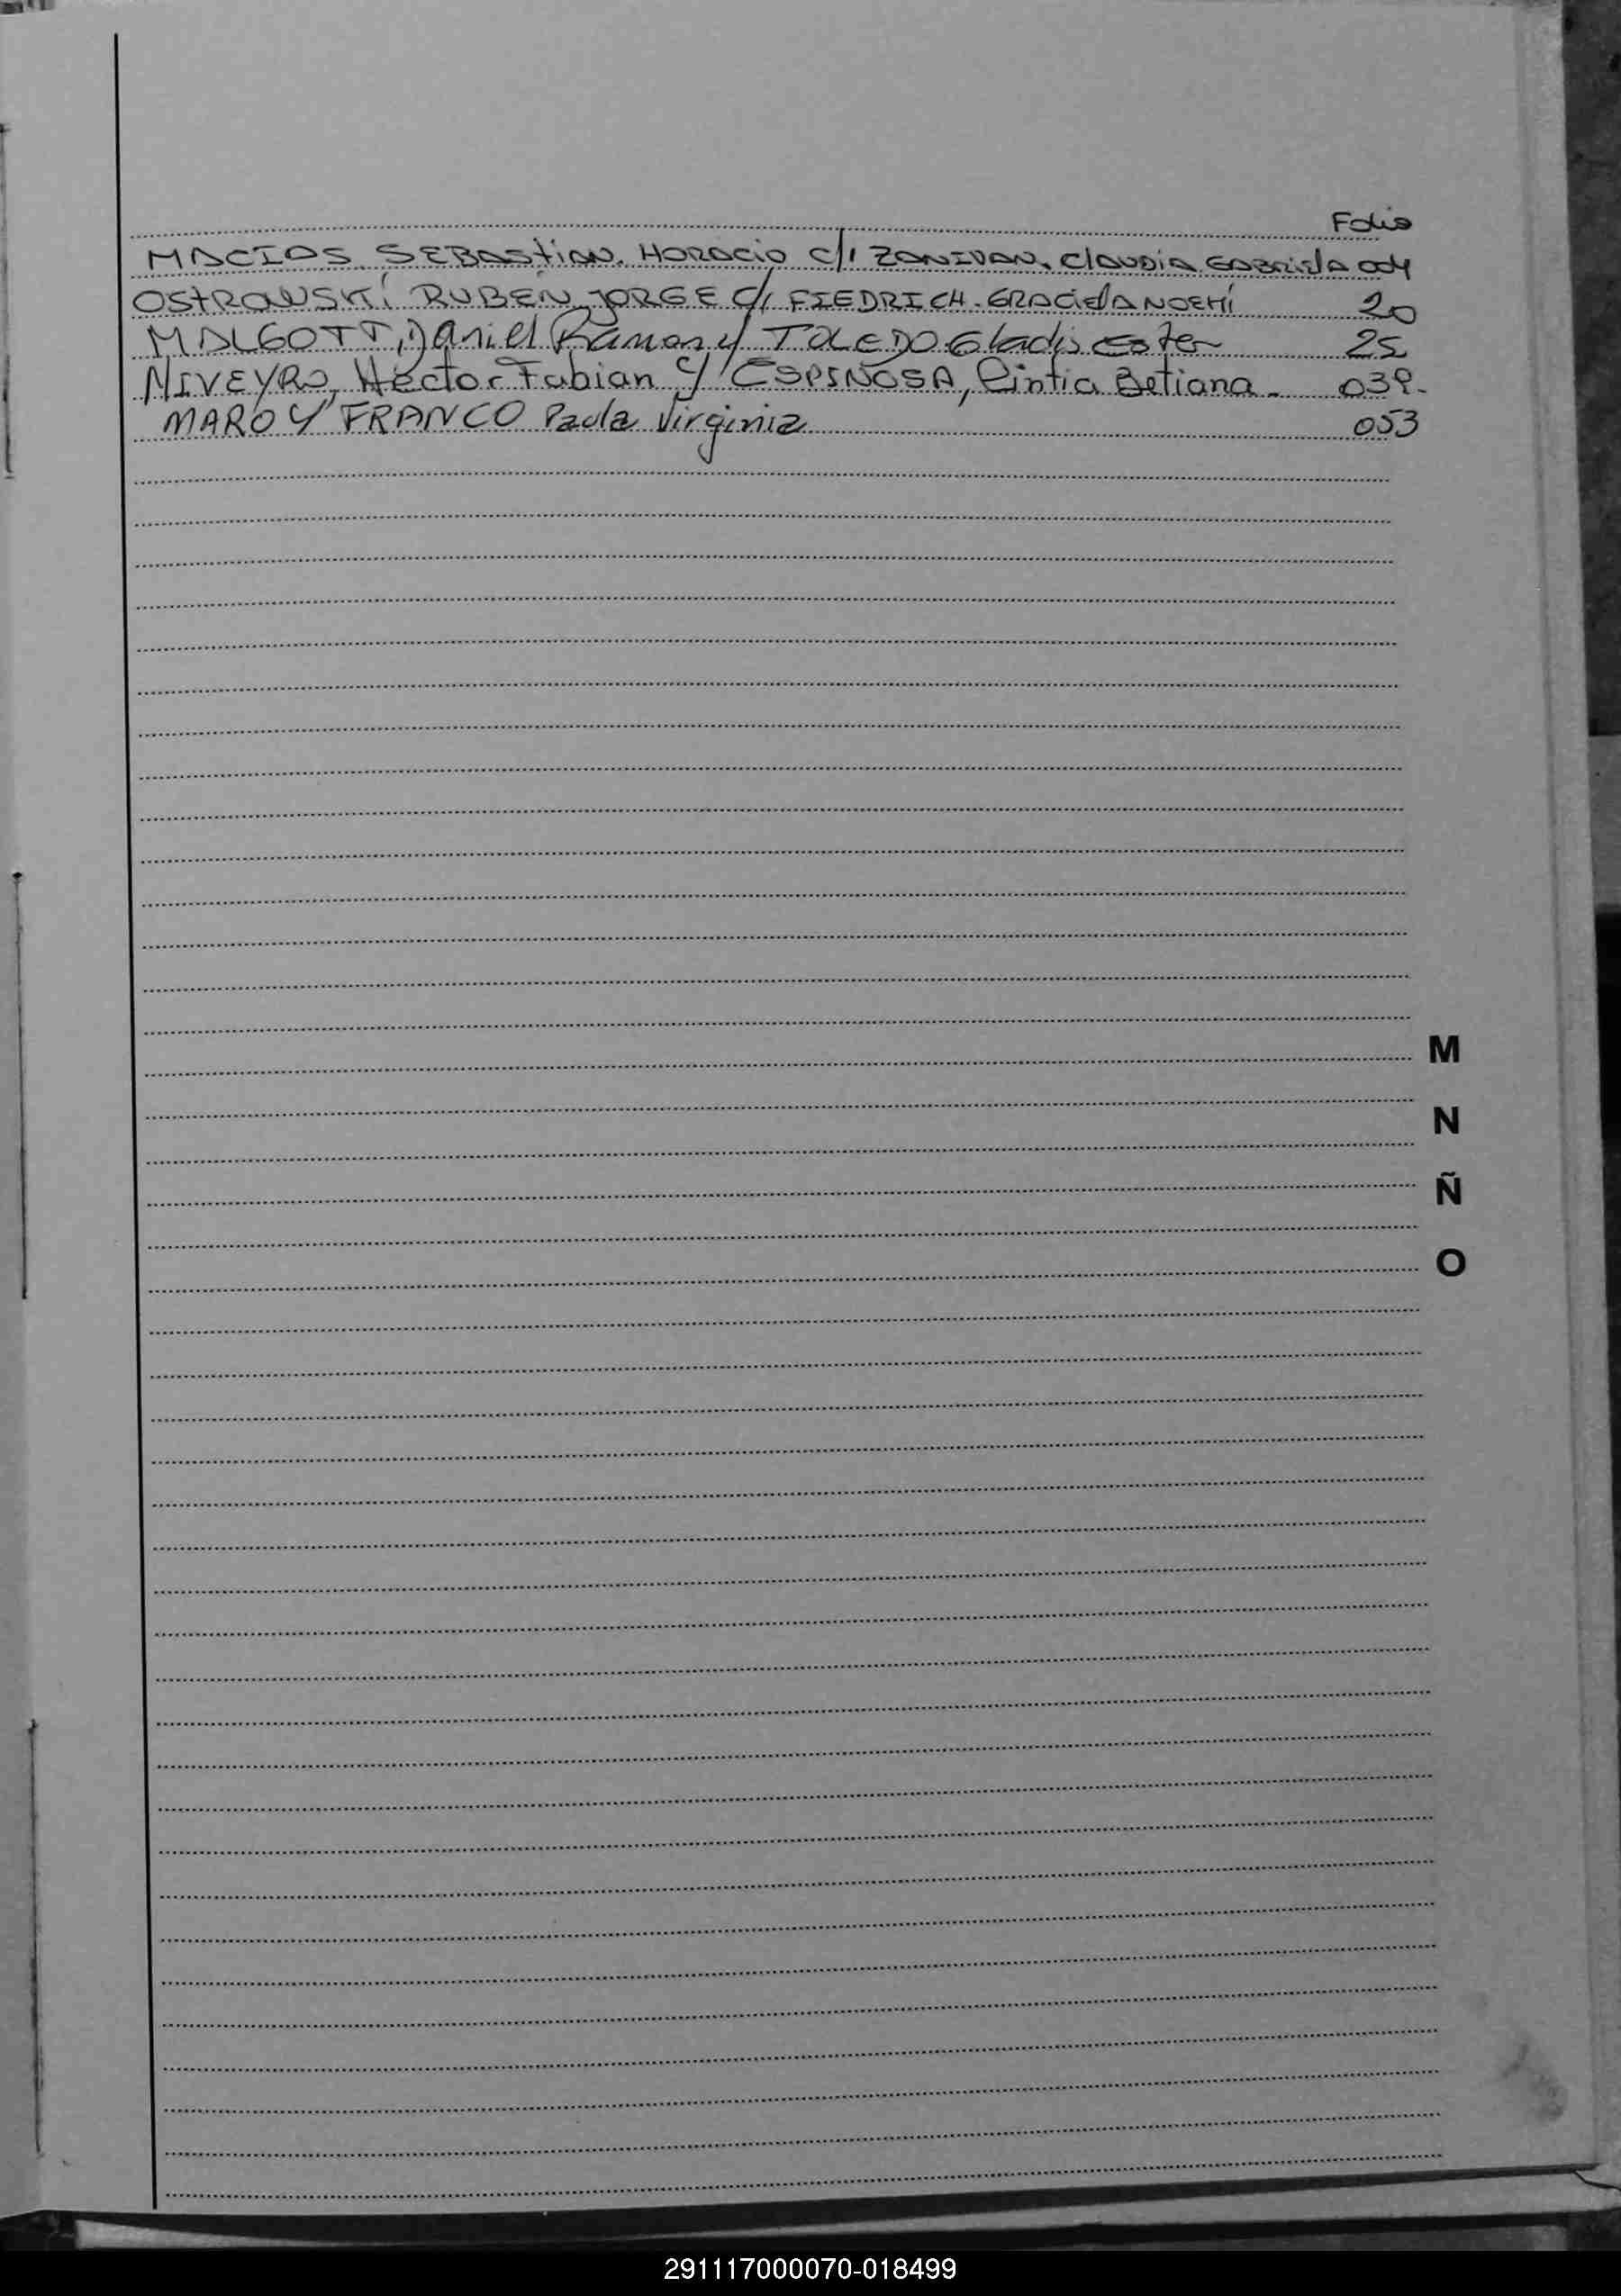 Folio
MACIAS SEBAStiAN. HORACIO c/i ZANIVAN, ClAUDIA GABRIela 004
OStROWSKÍ RUBEN JORGE c/i FIEDRICH. GRACIelA NOEMÍ 20
MALGOTT, Daniel Ramon y TOLEDO Gladis Ester 25
NIVEYRO, Héctor Fabian Y ESPINOSA, Cintia Betiana. 039.
MARO Y FRANCO Paola Virginia 053
M
N
Ñ
O
291117000070-018499